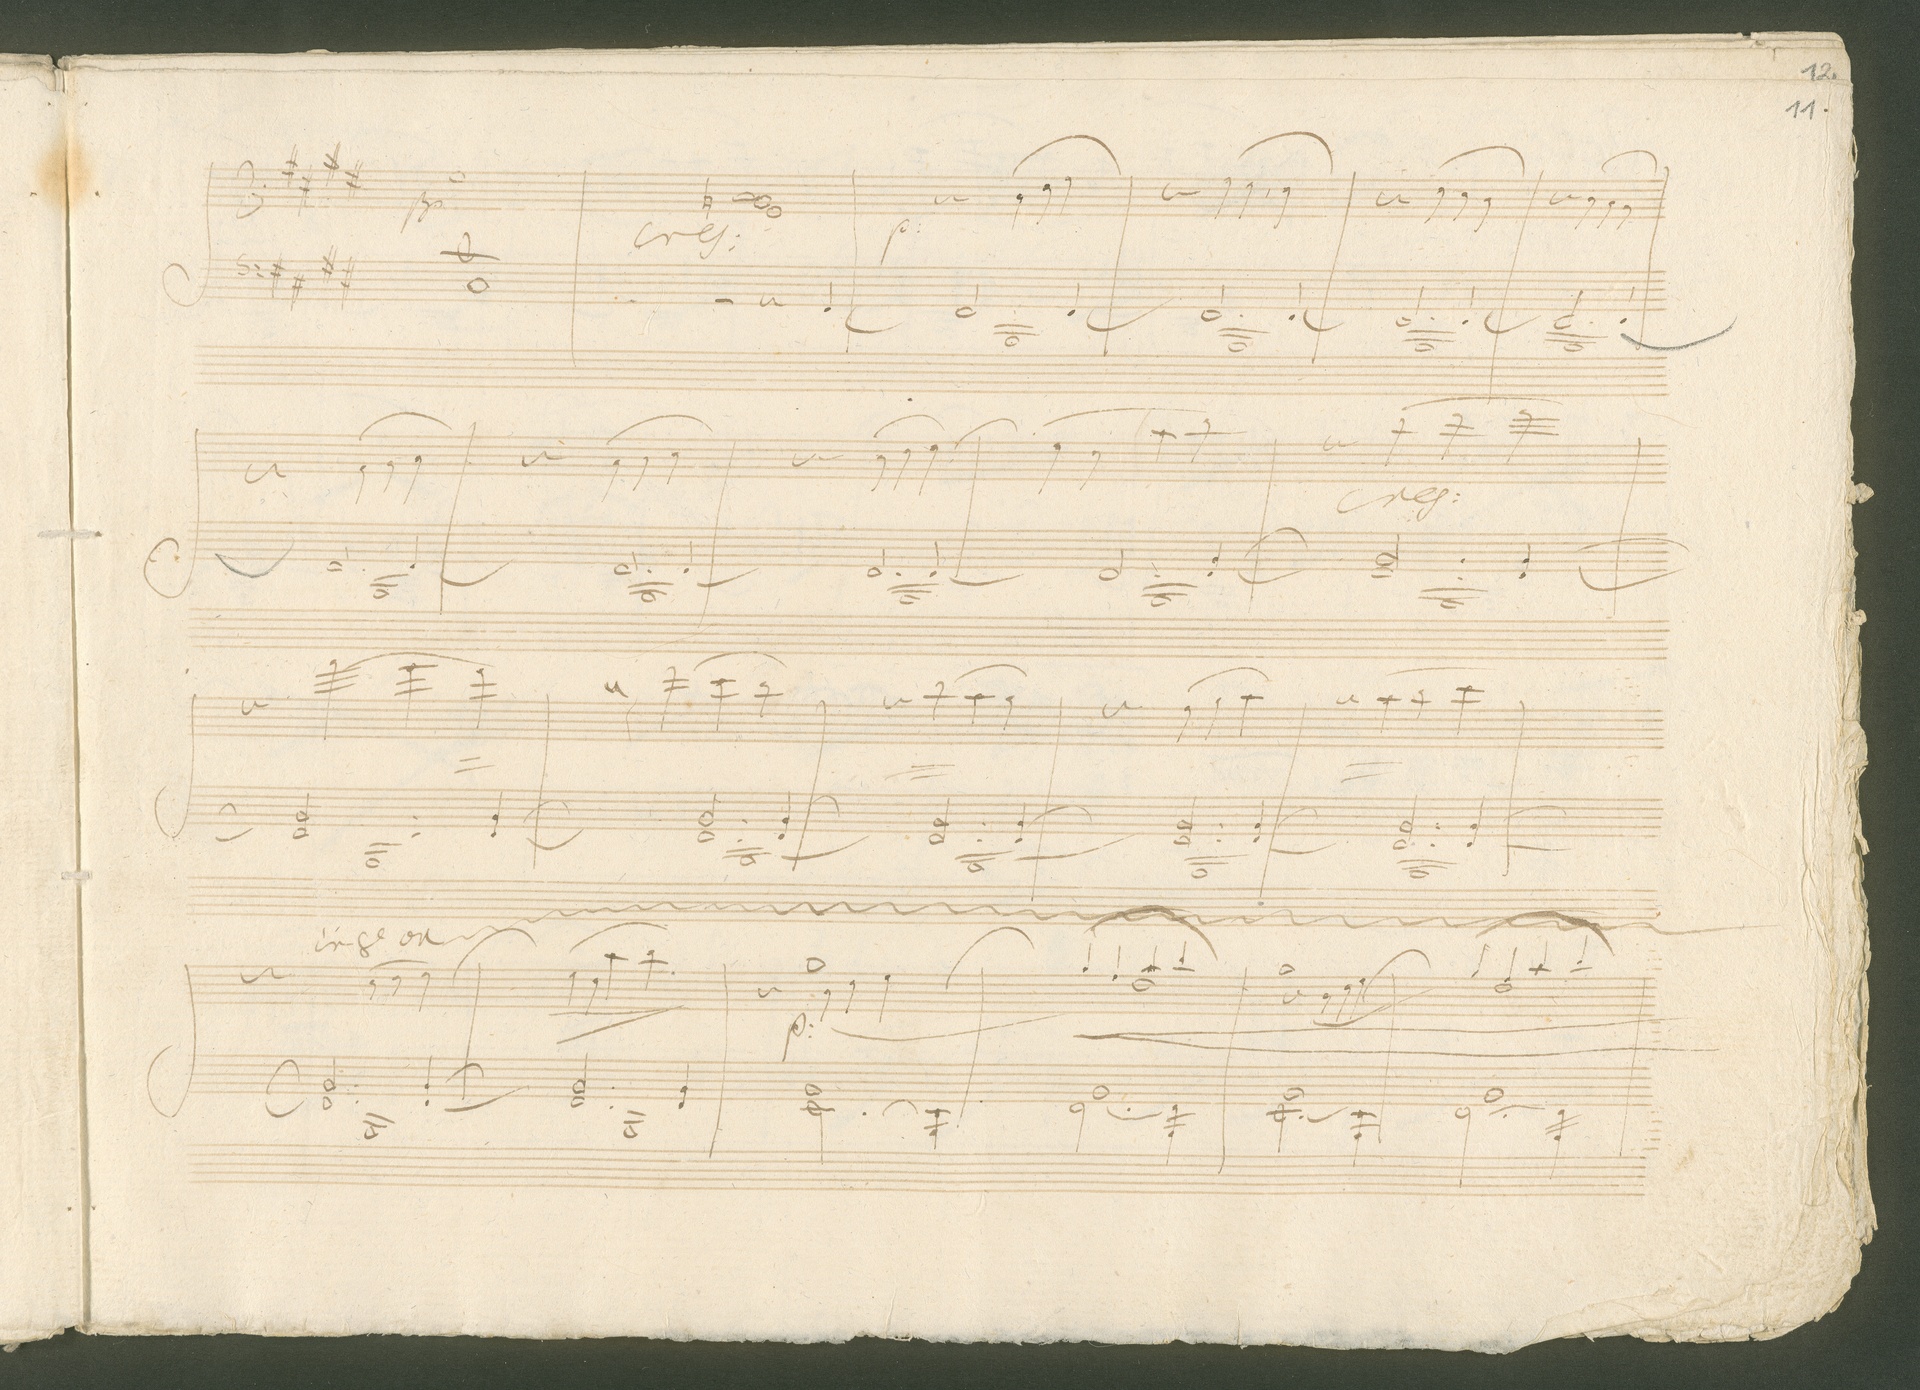 12.
11.
pp
cresc:
p:
cresc:
p: